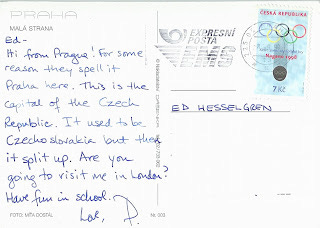 PRAHA
MALÁ STRANA
Ed-
Hi from Prague! For some
reason they spell it
Praha here. This is the
capital of the Czech
Republic. It used to be
Czechoslovakia but then
it split up. Are you
going to visit me in London?
Have fun in school.
Love, P.
FOTO: MÍŤA DOSTÁL
NO. 003
EXPRESNÍ
POŠTA
EMS
ČESKÁ REPUBLIKA
Nagano 1998
7 Kč
ED HESSELGREN